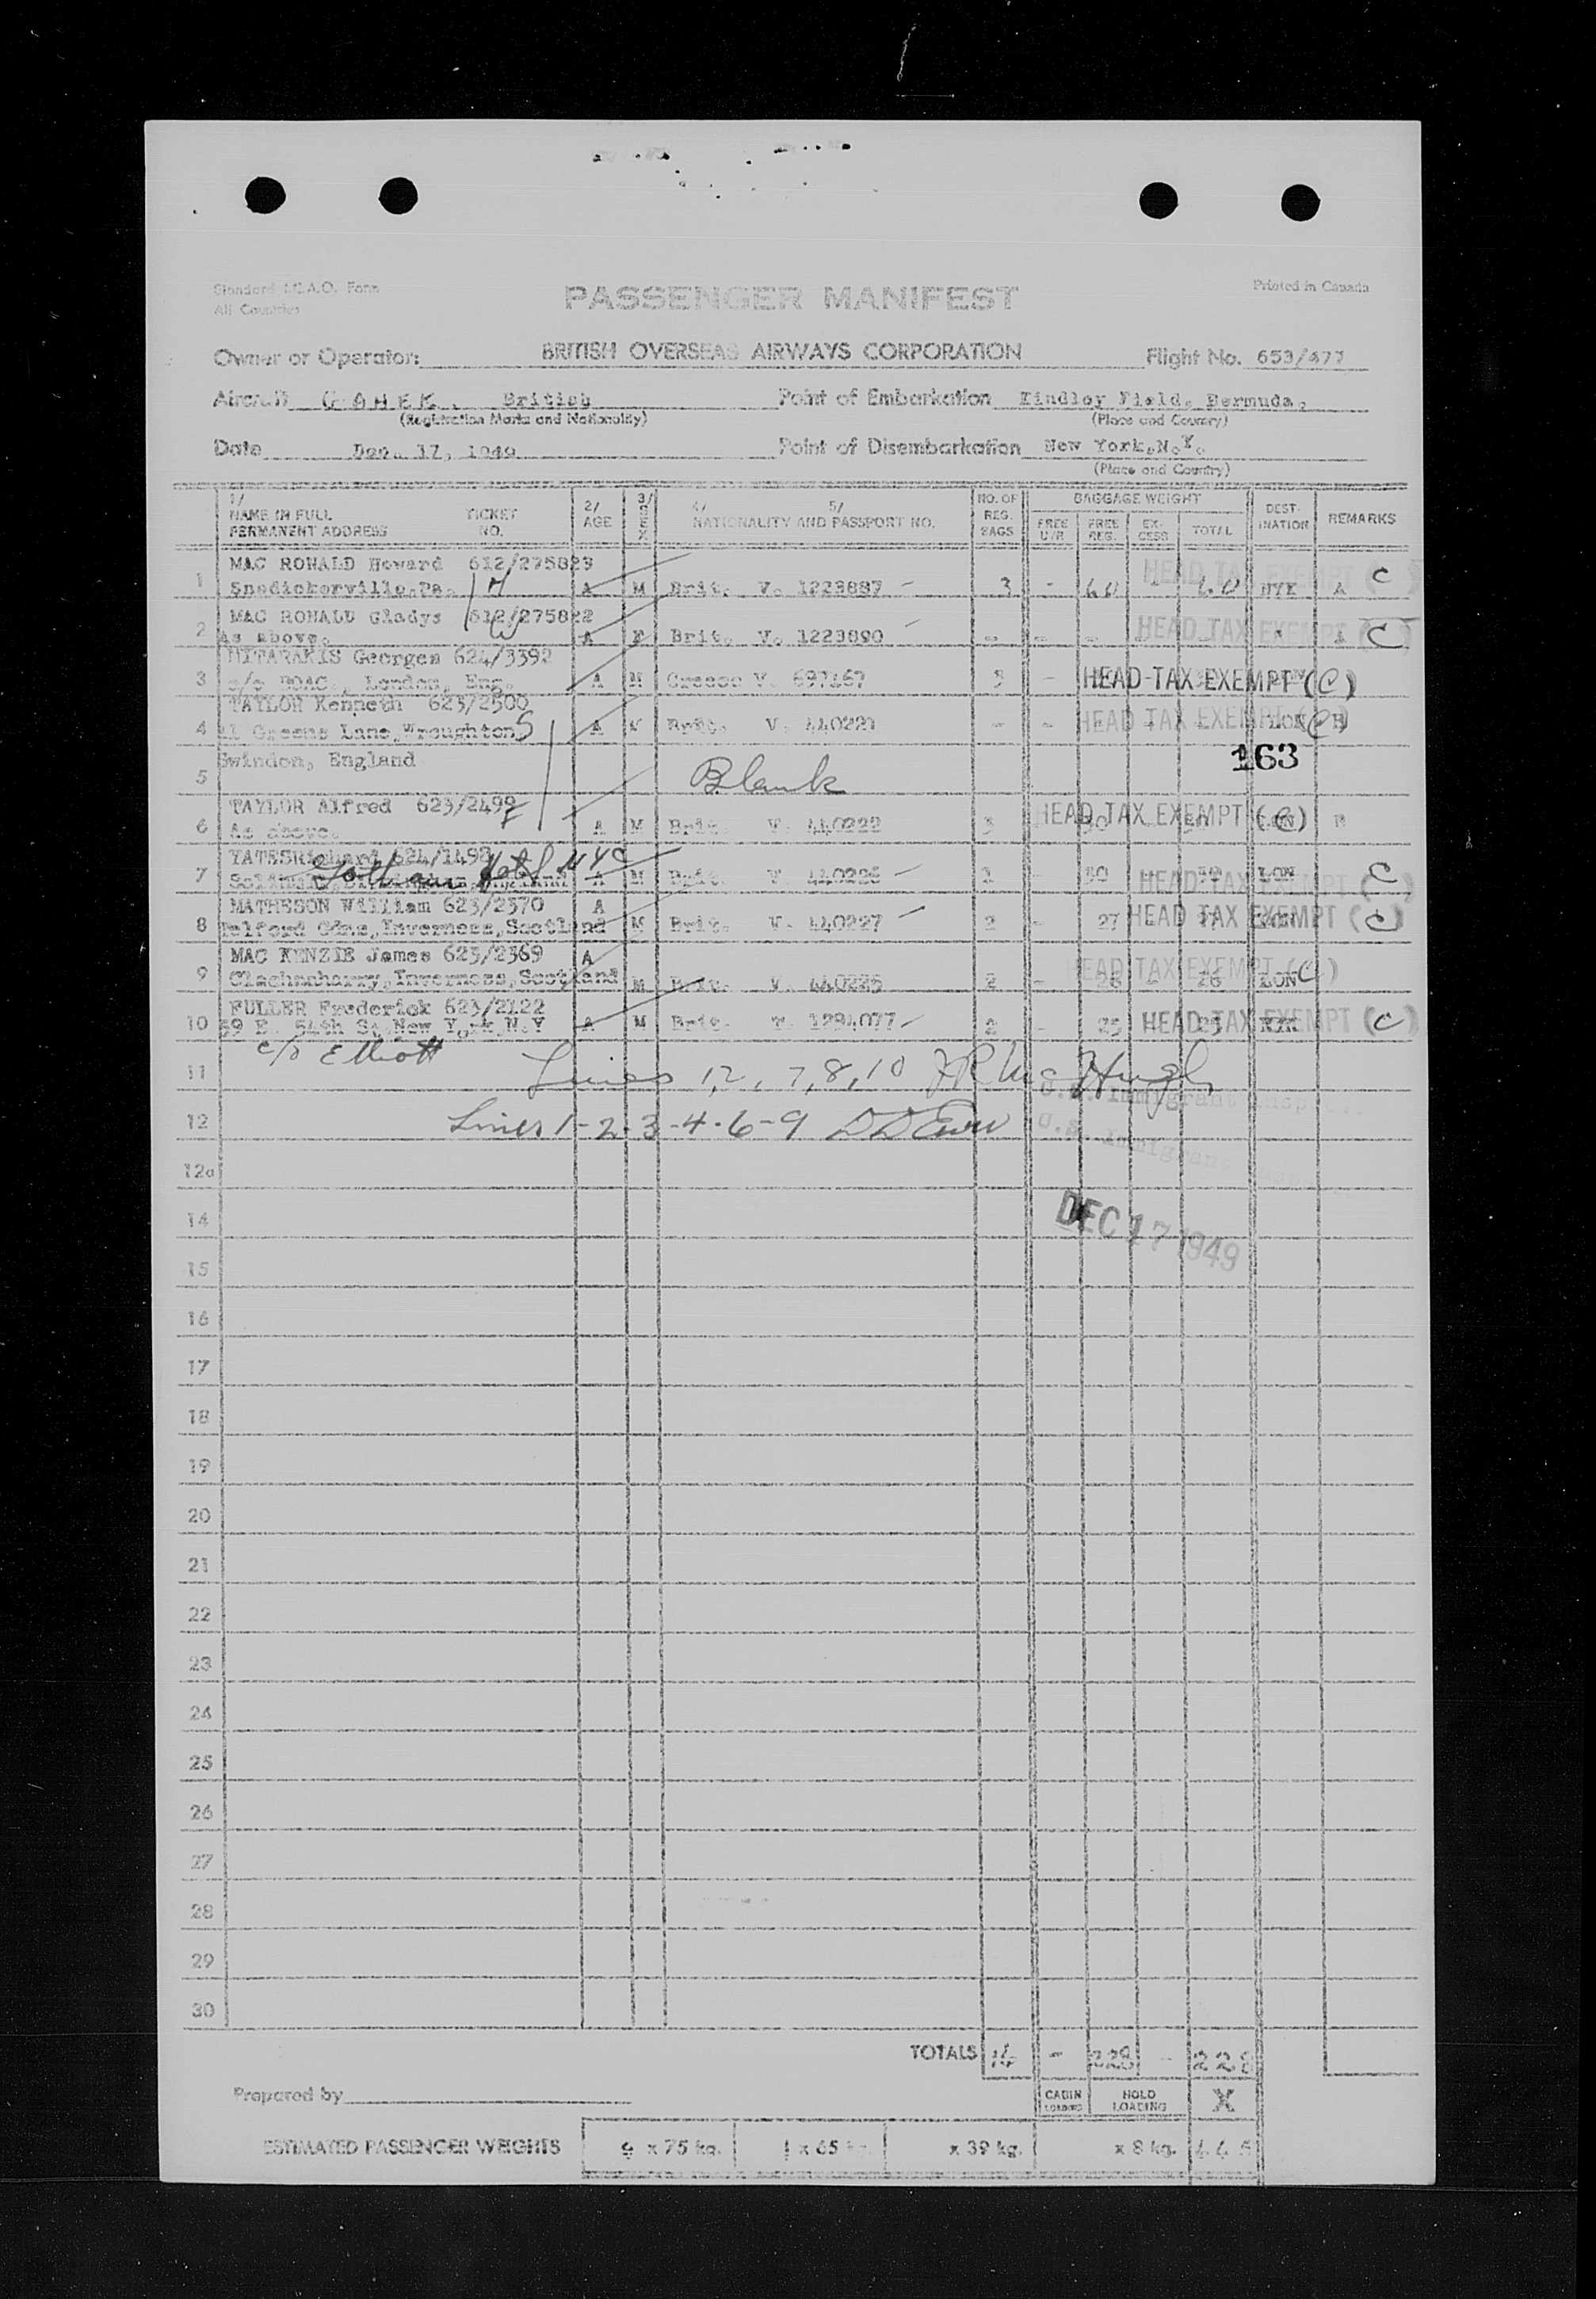 Standard I.C.A.O. Form
All Countries
PASSENGER MANIFEST
Printed in Canada
Owner or Operator: BRITISH OVERSEAS AIRWAYS CORPORATION Flight No. 653/477
Aircraft G AHEK. British Point of Embarkation Kindley Field, Bermuda,
(Registration Marks and Nationality) (Place and Country)
Date Dec. 17, 1949 Point of Disembarkation New York,N.Y.
(Place and Country)
1/ NAME IN FULL PERMANENT ADDRESS TICKET NO. 2/ AGE 3/ SEX 4/ 5/ NATIONALITY AND PASSPORT NO. NO. OF REG. BAGS BAGGAGE WEIGHT FREE U/R FREE REG. EX-CESS TOTAL DEST-INATION REMARKS
MAC RONALD Howard 612/275823
1 Snedickerville,Pa. H A M Brit. V. 1223887 3 - 60 - 60 NYK A HEAD TAX EXEMPT (C)
MAC RONALD Gladys 612/275822
2 As above. W A F Brit. V. 1223890 - - - HEAD TAX EXEMPT (C)
MITARAKIS Georges 624/3392
3 c/o BOAC., London, Eng. A M Greece V. 697467 3 - HEAD TAX EXEMPT (C)
TAYLOR Kenneth 623/2500
4 11 Greens Lane,Wroughton S A M Brit. V. 440221 - - - - - LON B HEAD TAX EXEMPT (C)
Swindon, England 163
5 Blank
TAYLOR Alfred 623/2499
6 As above. F A M Brit. V. 440222 3 30 - 30 LON B HEAD TAX EXEMPT (C)
YATES Richard 624/1498
7 Gotham Hotel NYC A M Brit. V. 440226 30 LON HEAD TAX EXEMPT (C)
MATHESON William 623/2370 A
8 Telford Gdns,Inverness,Scotland M Brit. V. 440227 2 - 27 - 27 LON HEAD TAX EXEMPT (C)
MAC KENZIE James 623/2369 A
9 Clachnaharry,Inverness,Scotland M Brit. V. 440225 2 - 26 - 26 LON HEAD TAX EXEMPT (C)
FULLER Frederick 623/2122
10 59 E. 54th St,New York N.Y A M Brit. V. 1284077 2 - 25 25 NYK HEAD TAX EXEMPT (C)
c/o Elliott
11 Lines 1,2, 7,8,10
U.S. Immigrant Insp
12 Lines 1-2-3-4-6-9
U.S. Immigrant
12a
DEC 17 1949
14
15
16
17
18
19
20
21
22
23
24
25
26
27
28
29
30
TOTALS 14 - 228 - 228
Prepared by CABIN LOADING HOLD LOADING X
ESTIMATED PASSENGER WEIGHTS x 75 kg. 1 x 65 kg. x 39 kg. x 8 kg.